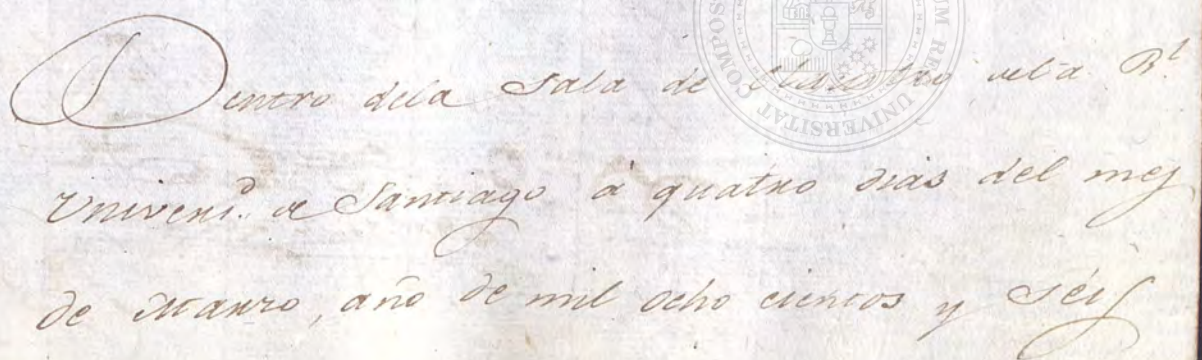 Dentro dela Sala de Claustro desta Rl.
Universd. de Santiago á quatro dias del mes
de Marzo, año de mil ocho cientos y séis